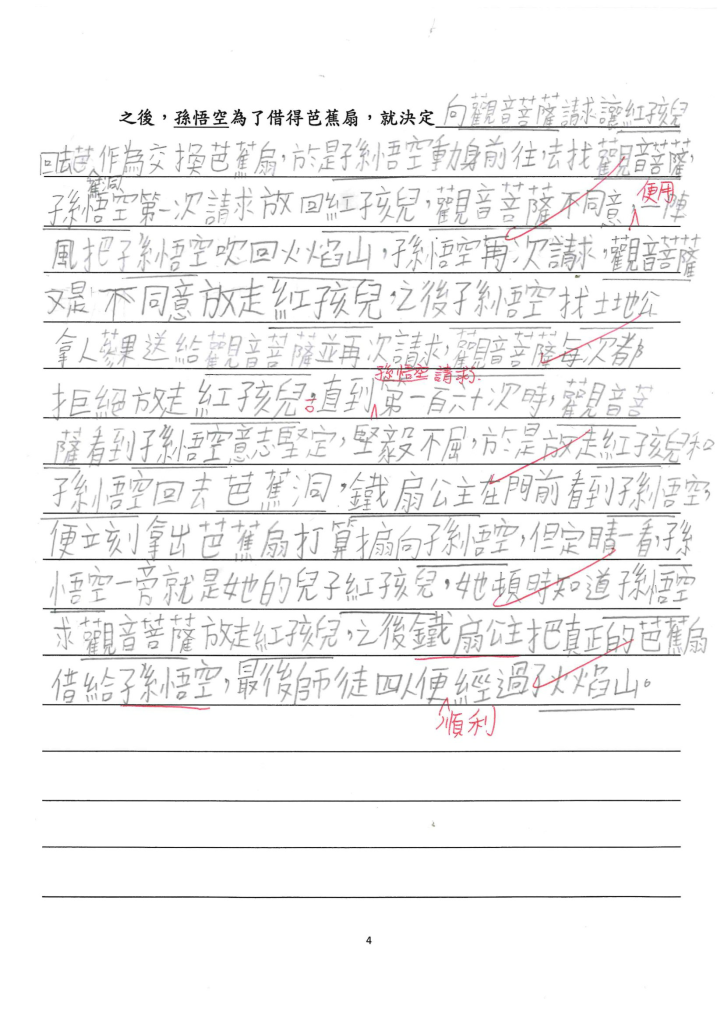 之後，孫悟空為了借得芭蕉扇，就決定向觀音菩薩請求讓紅孩兒
回去芭蕉洞作為交換芭蕉扇，於是孫悟空動身前往，去找觀音菩薩，
孫悟空第一次請求放回紅孩兒，觀音菩薩不同意，使用一陣
風把孫悟空吹回火焰山，孫悟空再次請求，觀音菩薩
又是不同意放走紅孩兒，之後孫悟空找土地公
拿人蔘果送給觀音菩薩並再次請求，觀音菩薩每次都
孫悟空請求
拒絕放走紅孩兒。直到第一百六十次時，觀音菩
薩看到孫悟空意志堅定，堅毅不屈，於是放走紅孩兒和
孫悟空回去芭蕉洞，鐵扇公主在門前看到孫悟空，
便立刻拿出芭蕉扇打算搧向孫悟空，但定睛一看，孫
悟空一旁就是她的兒子紅孩兒，她頓時知道孫悟空
求觀音菩薩放走紅孩兒，之後鐵扇公主把真正的芭蕉扇
借給孫悟空，最後師徒四人便經過了火焰山。
順利
4